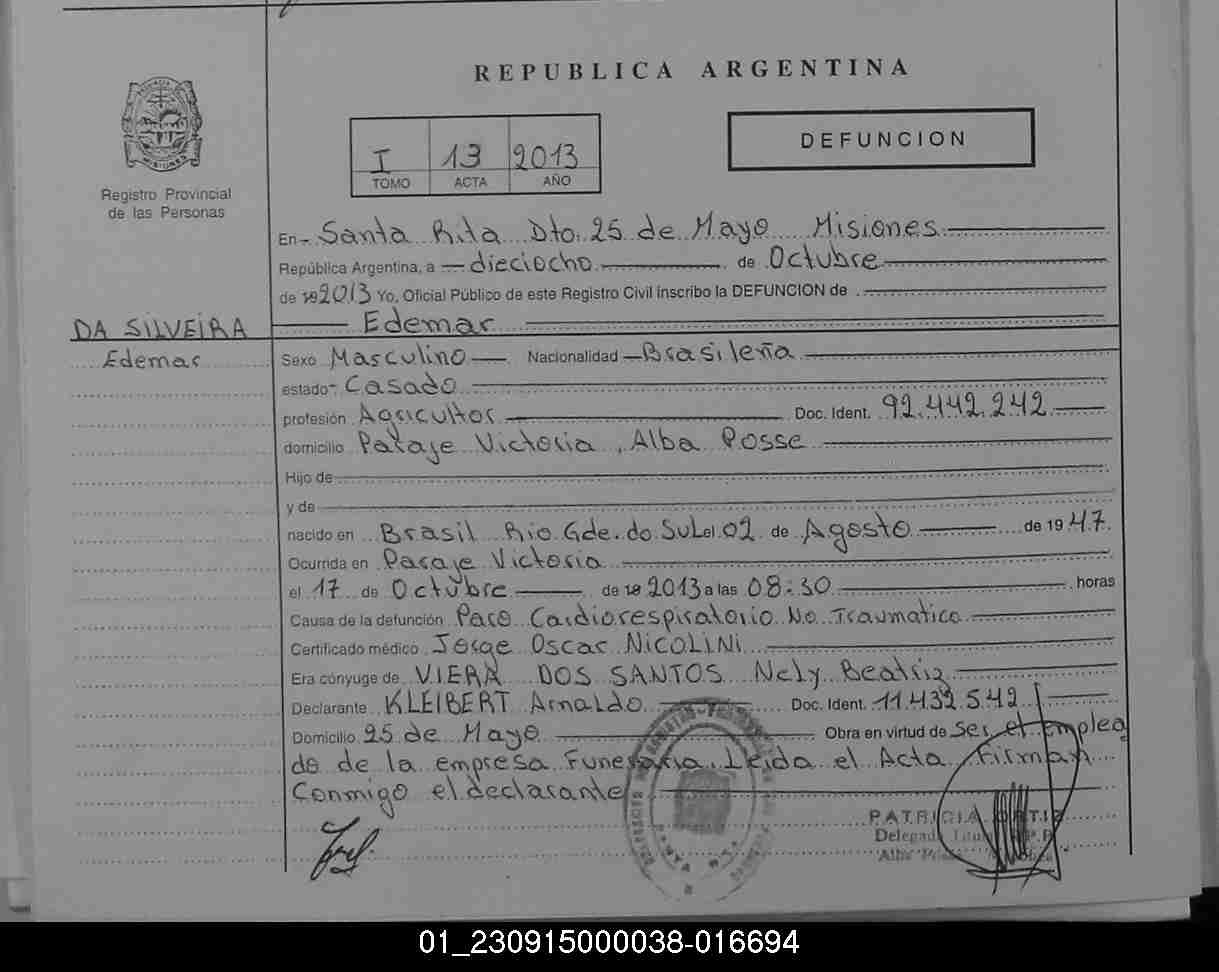 REPUBLICA ARGENTINA
DEFUNCION
I 13 2013
TOMO ACTA AÑO
Registro Provincial
de las Personas
En Santa Rita Dto. 25 de Mayo Misiones
República Argentina, a dieciocho de Octubre
de 192013 Yo, Oficial Público de este Registro Civil inscribo la DEFUNCION de
DA SILVEIRA
Edemar
Edemar
Sexo Masculino Nacionalidad Brasileña
estado Casado
profesión Agricultor Doc. Ident. 92.442.242
domicilio Paraje Victoria, Alba Posse
Hijo de
y de
nacido en Brasil Rio Gde. do Sul el 02 de Agosto de 1947.
Ocurrida en Paraje Victoria
el 17 de Octubre de 192013 a las 08:30 horas
Causa de la defunción Paro Cardiorespiratorio No Traumatico
Certificado médico Jorge Oscar NICOLINI
Era cónyuge de VIERA DOS SANTOS Nely Beatriz
Declarante KLEIBERT Arnaldo Doc. Ident. 11.432.542
Domicilio 25 de Mayo Obra en virtud de Ser el emplea
do de la empresa Funeraria. Leida el Acta Firman
Conmigo el declarante
PATRICIA ORTIZ
01_230915000038-016694